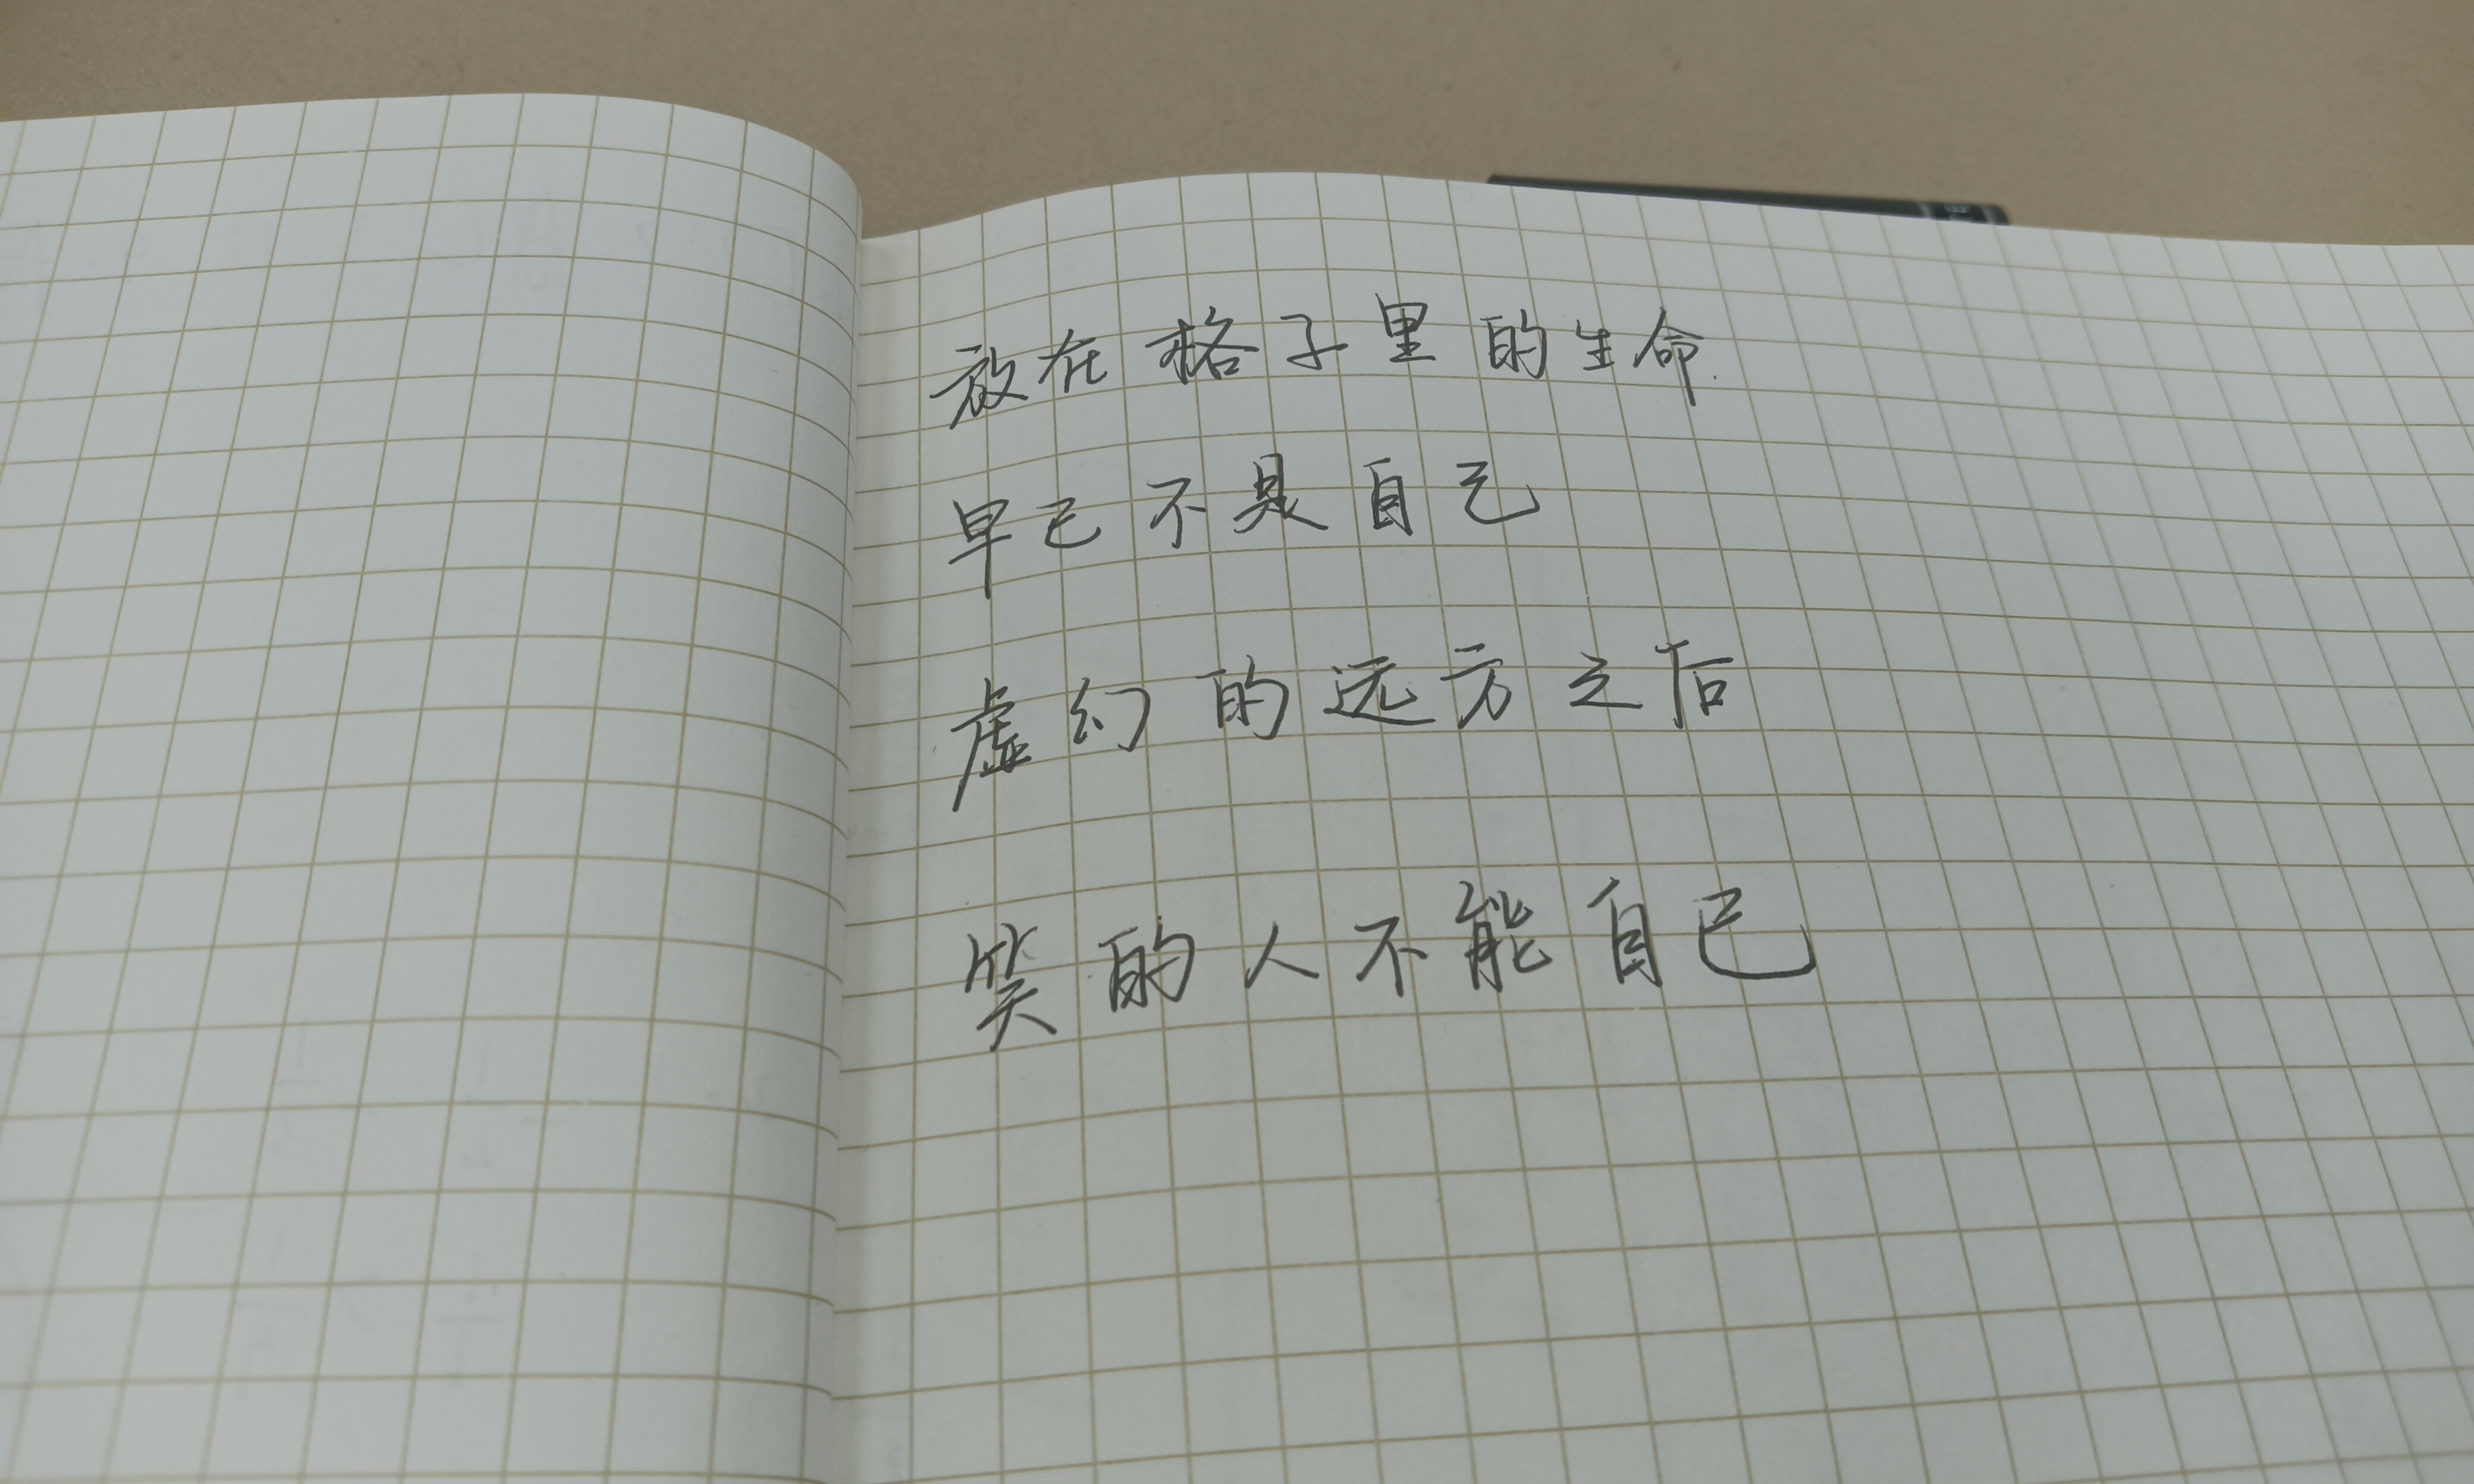 放在格子里的生命
早已不是自己
虚幻的远方之后
笑的人不能自已